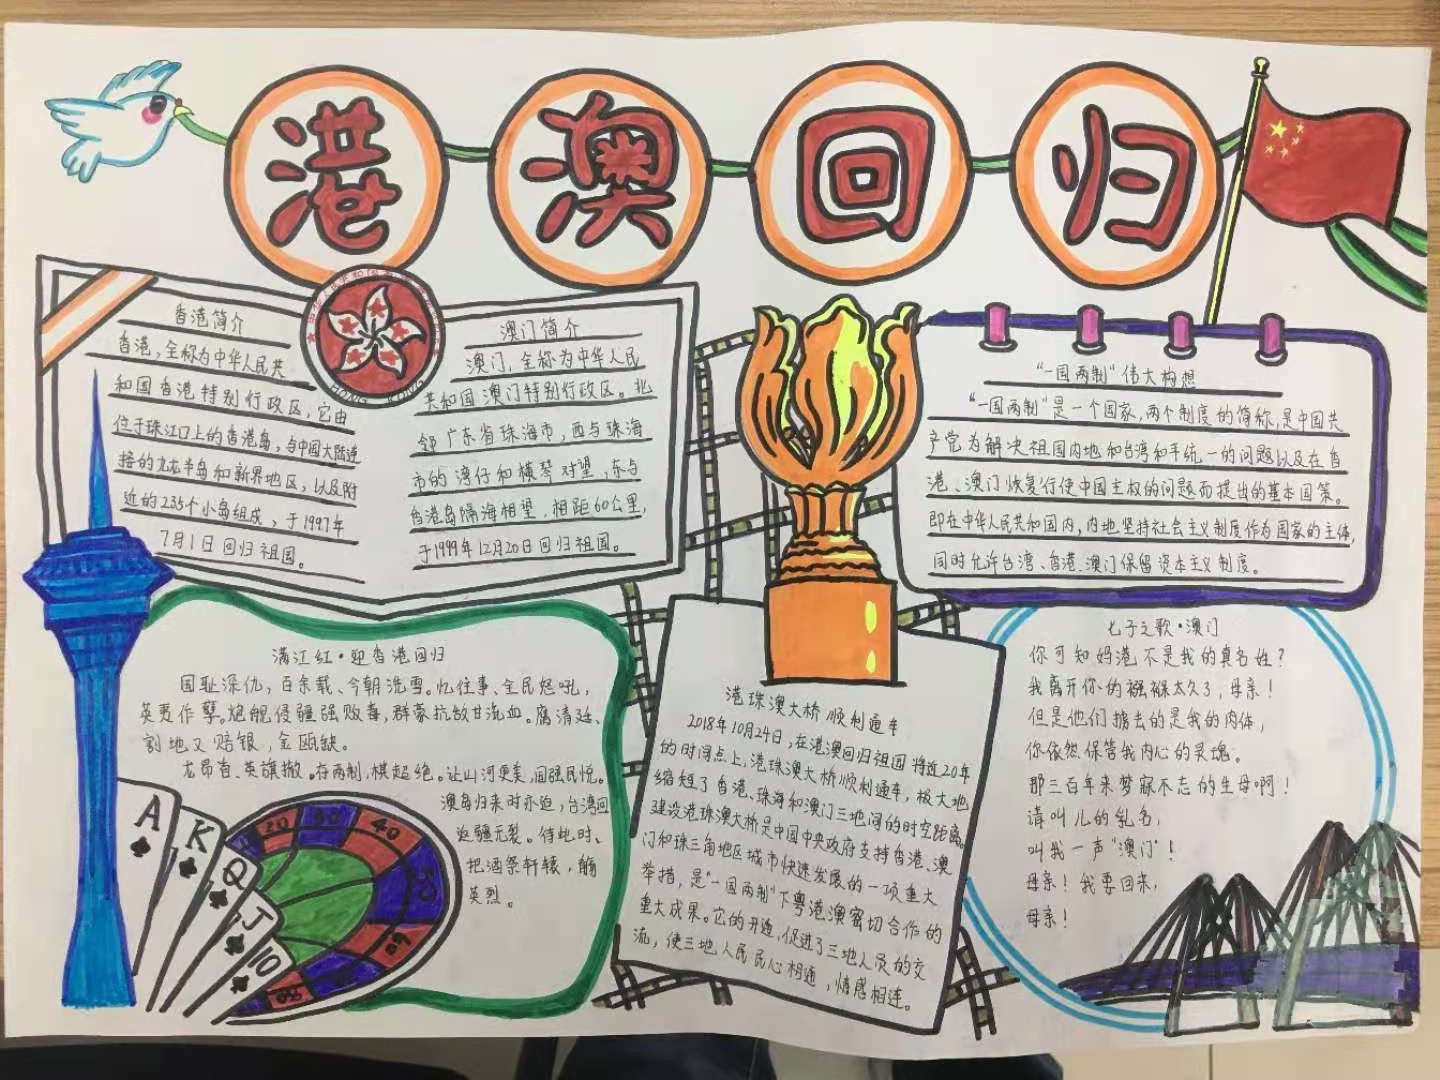 港澳回归
香港简介
香港,全称为中华人民共
和国香港特别行政区,它由
位于珠江口上的香港岛,与中国大陆连
接的九龙半岛和新界地区,以及附
近的235个小岛组成,于1997年
7月1日回归祖国。
HONG KONG
澳门简介
澳门,全称为中华人民
共和国澳门特别行政区。北
邻广东省珠海市,西与珠海
市的湾仔和横琴对望,东与
香港岛隔海相望,相距60公里,
于1999年12月20日回归祖国。
“一国两制”伟大构想
“一国两制”是一个国家,两个制度的简称,是中国共
产党为解决祖国内地和台湾和平统一的问题以及在香
港、澳门恢复行使中国主权的问题而提出的基本国策。
即在中华人民共和国内,内地坚持社会主义制度作为国家的主体,
同时允许台湾、香港、澳门保留资本主义制度。
满江红·迎香港回归
国耻深仇,百余载、今朝洗雪。忆往事、全民怒吼,
英夷作孽。炮舰侵疆强贩毒,群豪抗敌甘洗血。腐清廷、
割地又赔银,金瓯缺。
龙昂首、英旗撤。存两制,棋超绝。让山河更美,国强民悦。
澳岛归来时亦迫,台湾回
返疆无裂。待此时、
把酒祭轩辕,觞
英烈。
A
K
Q
J
10
20
30
40
50
60
港珠澳大桥顺利通车
2018年10月24日,在港澳回归祖国将近20年
的时间点上,港珠澳大桥顺利通车,极大地
缩短了香港、珠海和澳门三地间的时空距离。
建设港珠澳大桥是中国中央政府支持香港、澳
门和珠三角地区城市快速发展的一项重大
举措,是“一国两制”下粤港澳密切合作的
重大成果。它的开通,促进了三地人员的交
流,使三地人民民心相通,情感相连。
七子之歌·澳门
你可知妈港不是我的真名姓?
我离开你的襁褓太久了,母亲!
但是他们掳去的是我的肉体,
你依然保管我内心的灵魂。
那三百年来梦寐不忘的生母啊!
请叫儿的乳名,
叫我一声“澳门”!
母亲!我要回来,
母亲!